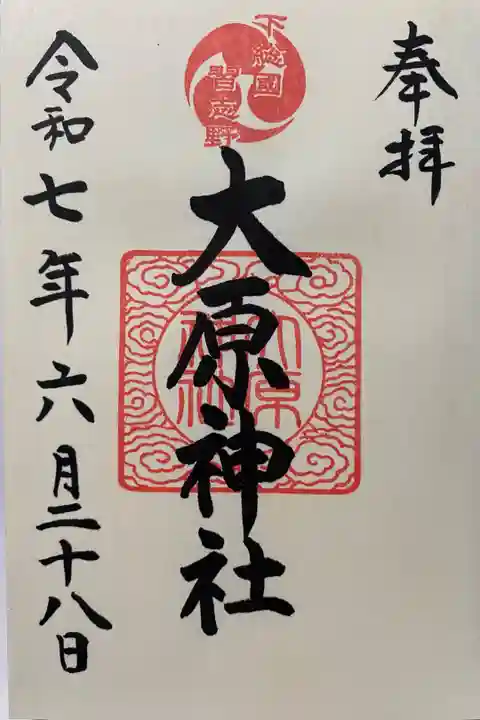 奉拝
下総國
習志野
大原神社
大原
神社
令和七年六月二十八日